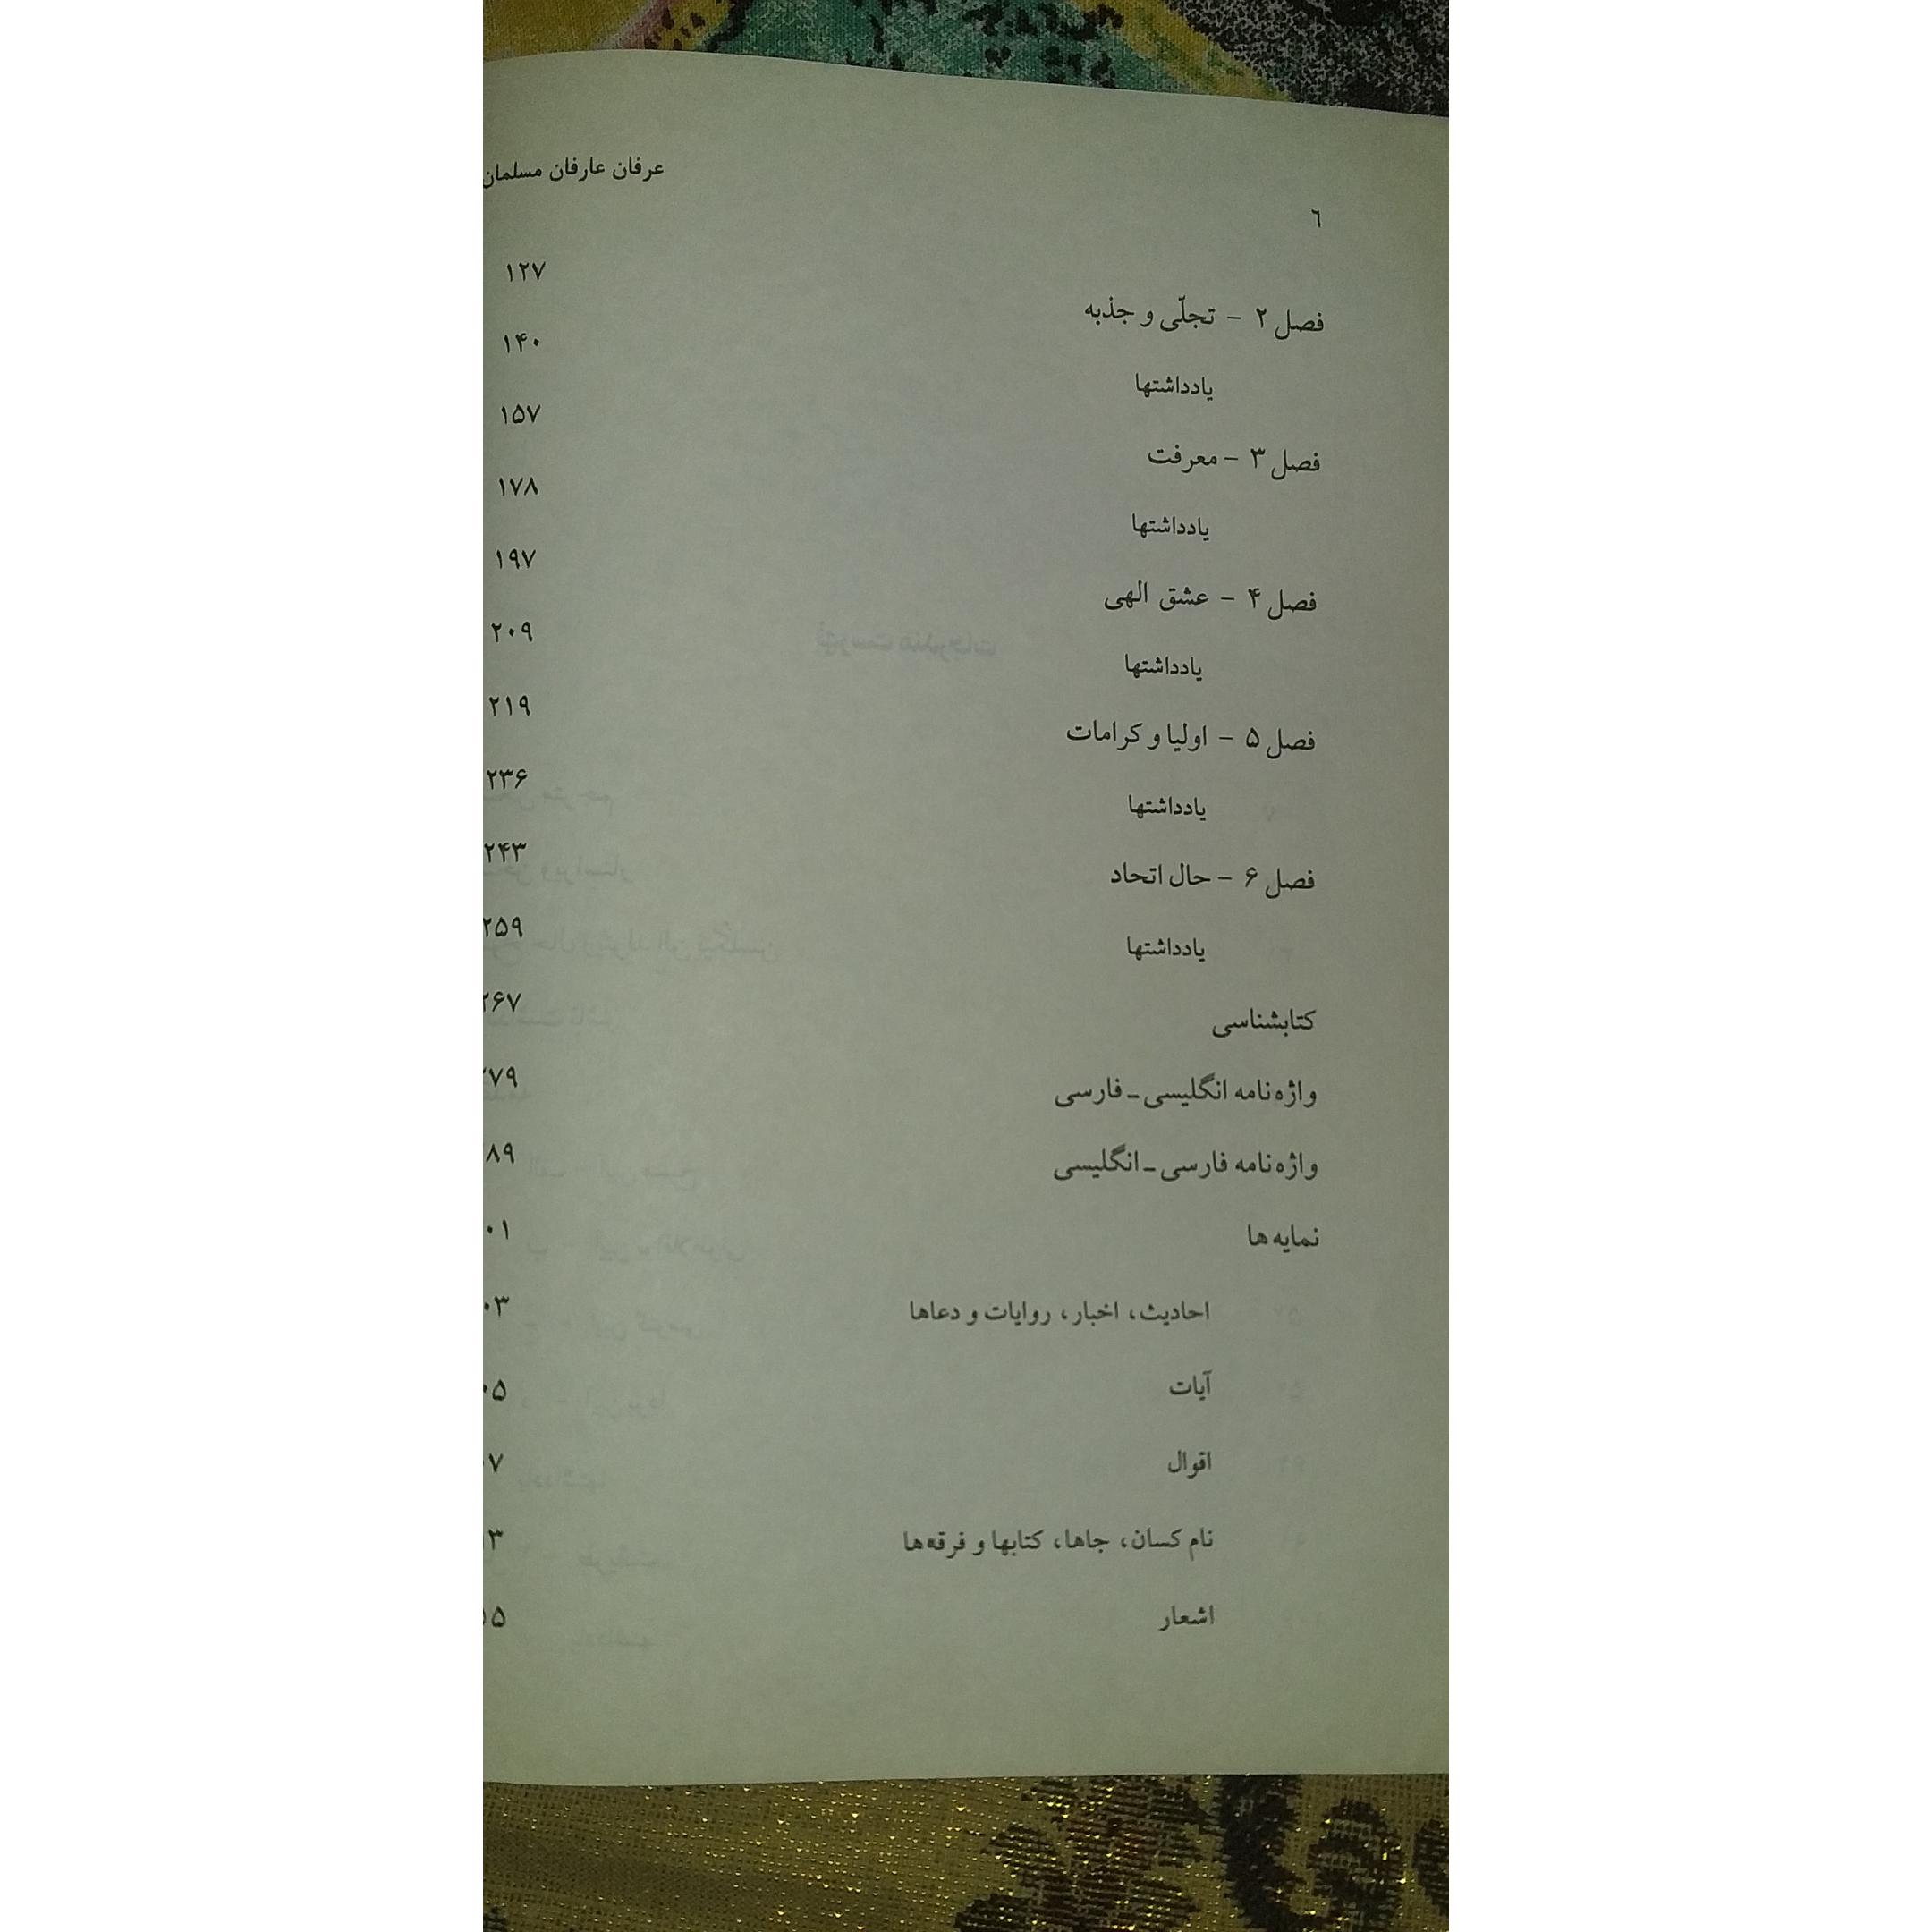 ۶
عرفان عارفان مسلمان
فصل ۲ – تجلّی و جذبه ۱۲۷
یادداشتها ۱۴۰
فصل ۳ – معرفت ۱۵۷
یادداشتها ۱۷۸
فصل ۴ – عشق الهی ۱۹۷
یادداشتها ۲۰۹
فصل ۵ – اولیا و کرامات ۲۱۹
یادداشتها ۲۳۶
فصل ۶ – حال اتحاد ۲۴۳
یادداشتها ۲۵۹
کتابشناسی ۲۶۷
واژه‌نامه انگلیسی ـ فارسی ۷۹
واژه‌نامه فارسی ـ انگلیسی ۸۹
نمایه‌ها ۰۱
احادیث، اخبار، روایات و دعاها ۰۳
آیات ۰۵
اقوال ۷
نام کسان، جاها، کتابها و فرقه‌ها ۱۳
اشعار ۱۵